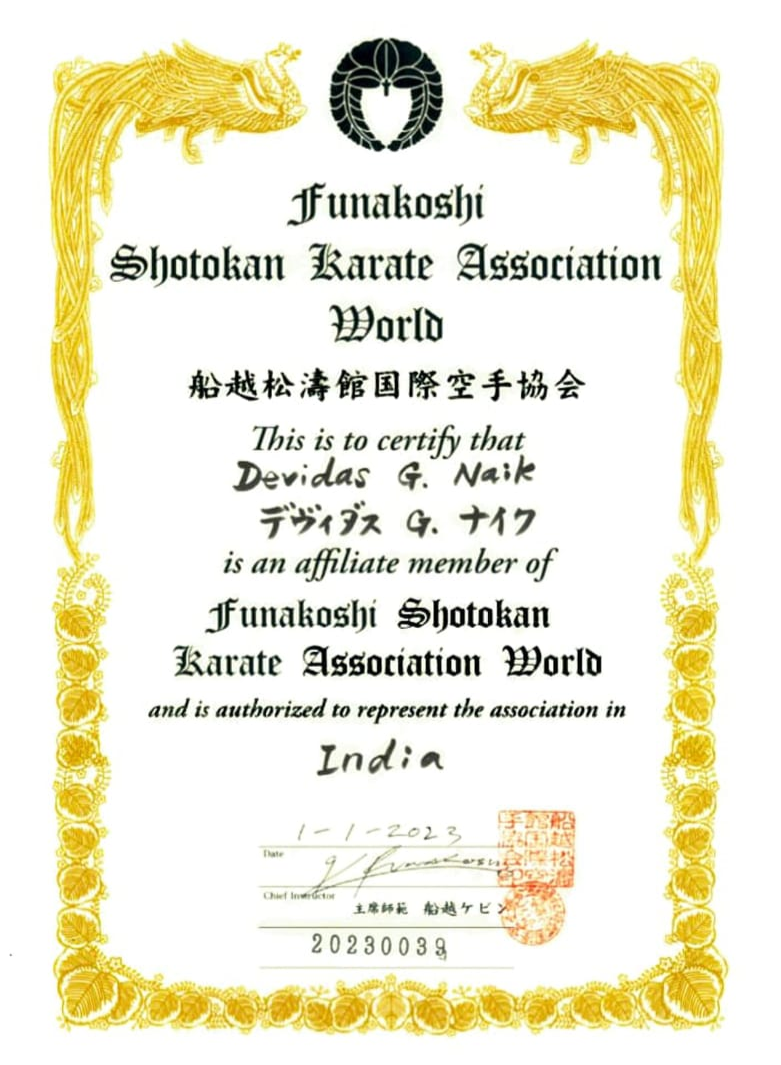 Funakoshi
Shotokan Karate Association
World
船越松濤館国際空手協会
This is to certify that
Devidas G. Naik
デヴィダス G. ナイク
is an affiliate member of
Funakoshi Shotokan
Karate Association World
and is authorized to represent the association in
India
1-1-2023
Date
K Funakoshi
Chief Instructor
主席師範 船越ケビン
20230039